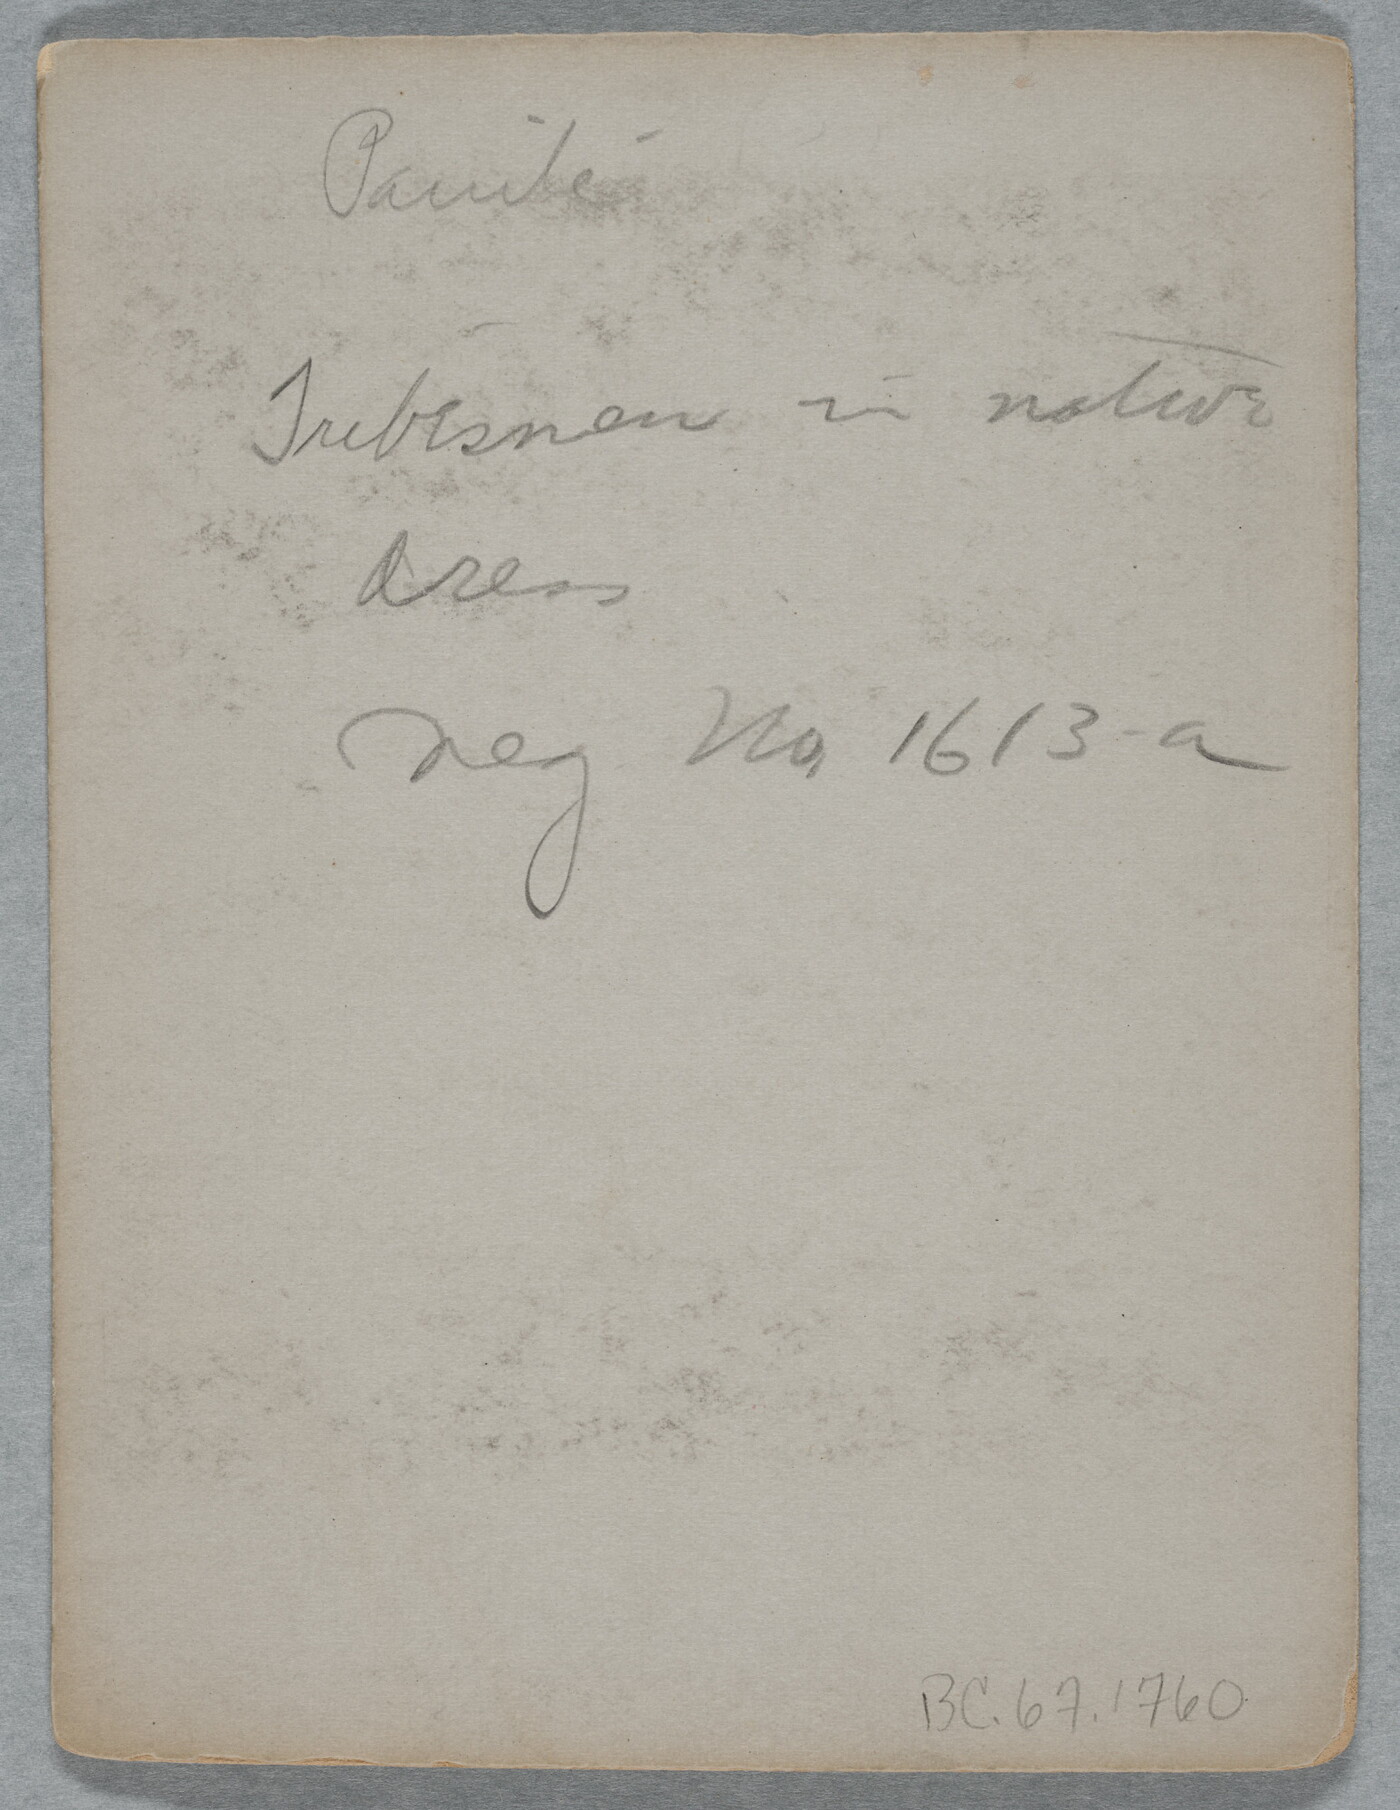 Tribesmen in native
dress
Neg No, 1613-a
BC.67.1760